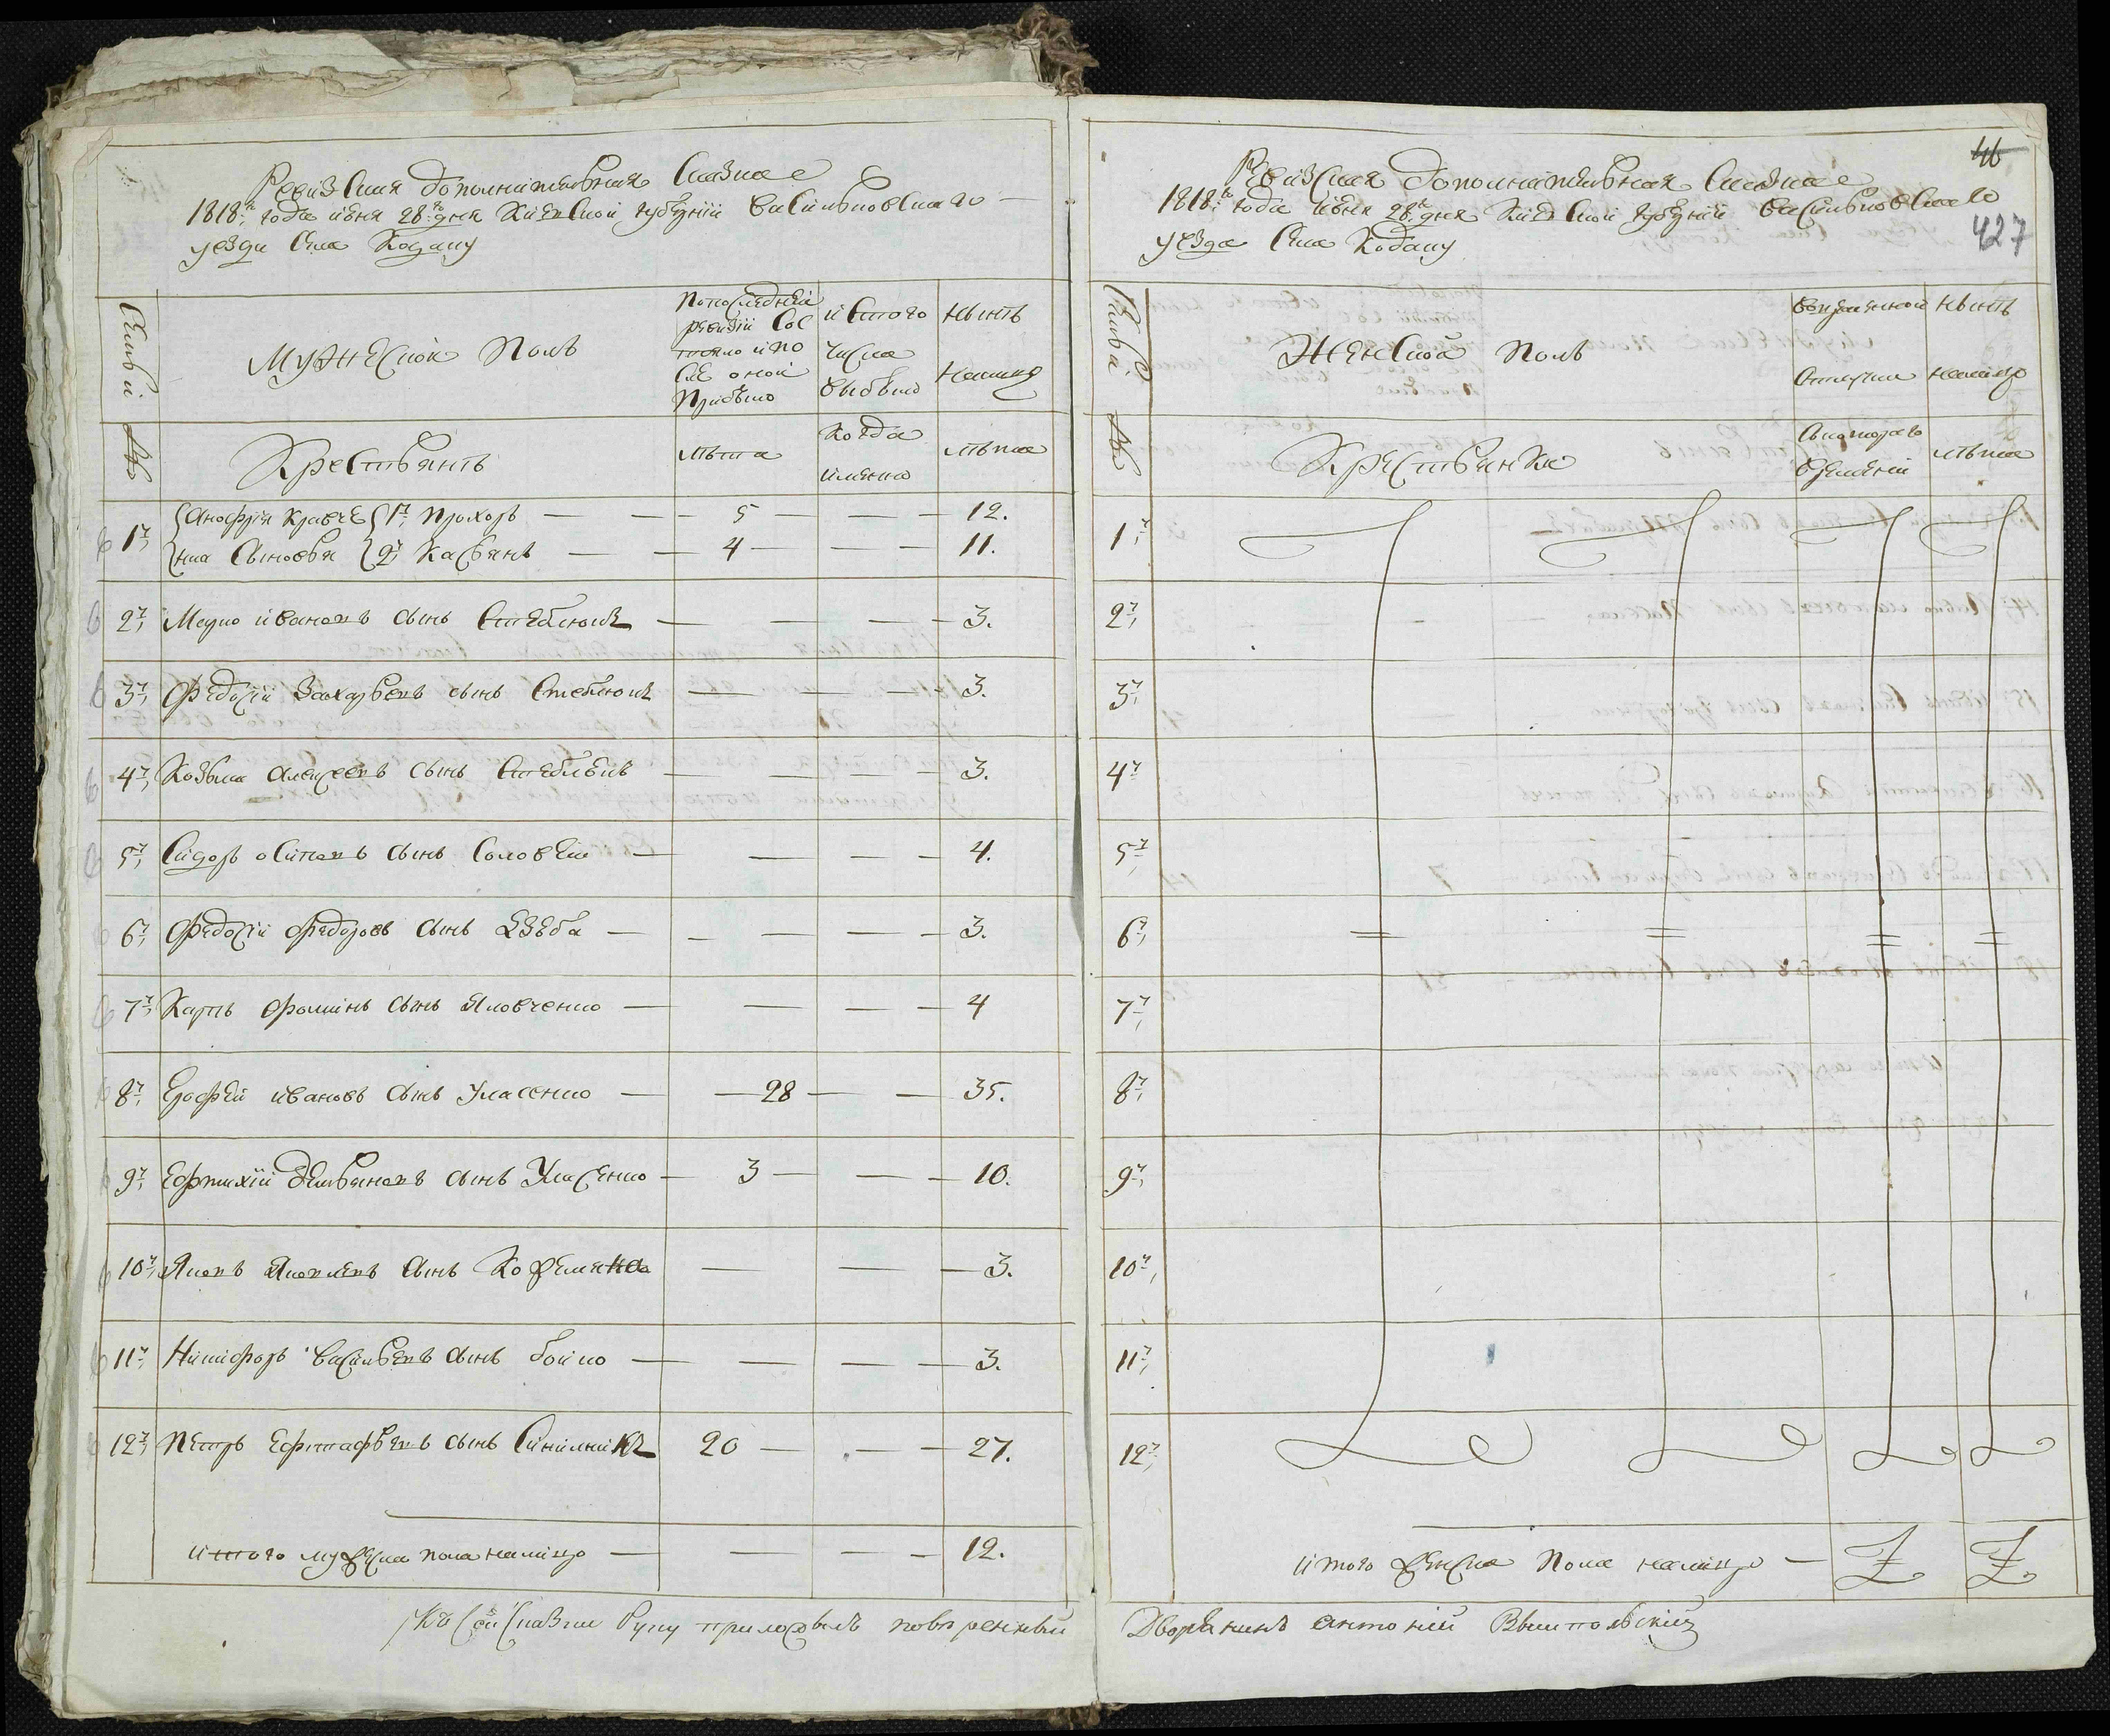 Ревизская дополнительная сказка
1818го года июня 28го дня Киевской губернии Васильковскаго
уезда села Кодаку
Семьи
Мужеской полъ
По последней
ревизіи сос
тояло и по
сле оной
прибыло
и с того
числа
выбыло
ныне
налицо
№
Крестьянъ
лета
когда
именно
лета
1й Анофрія Кравче 1й Прохоръ — — 5 — — — 12.
нка сыновья 2й Касьянъ — — 4 — — — 11.
2й Марко ивановъ сынъ Стеблюкъ — — — — 3.
3й Федосій Захарьевъ сынъ Стеблюкъ — — — 3.
4й Козьма Алексеевъ сынъ Стеблюкъ — — — 3.
5й Сидоръ осиповъ сынъ Соловей — — — — 4.
6й Федосій федоровъ сынъ — — — — — 3.
7й Карпъ фоминъ сынъ Яковченко — — — — 4
8й Ерофей ивановъ сынъ Уласенко — — 28 — — 35.
9й Ефтихій Демьяновъ сынъ Уласенко — 3 — — — 10.
10й Яковъ Яковлевъ сынъ — — — 3.
11й Никифоръ Васильевъ сынъ бойко — — — — 3.
12й Петръ Ефстафьевъ сынъ 20 — — — 27.
итого мужеска пола налицо — — — — 12.
Къ сей сказки руку приложилъ поверенный
46
427
Ревизская дополнительная сказка
1818го года июня 28го дня Киевской губерніи Васильковскаго
уезда села Кодаку
Семьи
Женской полъ
во временной
отлучке
ныне
налицо
№
Крестьянки
с котораго
времени
лета
1й
2й
3й
4й
5й
6й
7й
8й
9й
10й
11й
12й
итого женска пола налицо —
Дворянинъ Антоній Вышпольскій